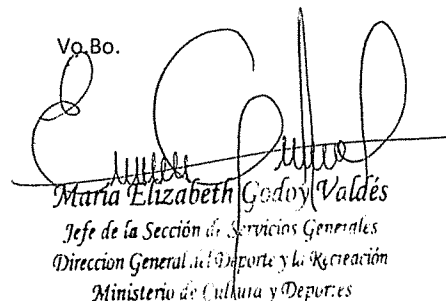 Vo.Bo.
María Elizabeth Godoy Valdés
Jefe de la Sección de Servicios Generales
Direccion General del Deporte y la Recreación
Ministerio de Cultura y Deportes